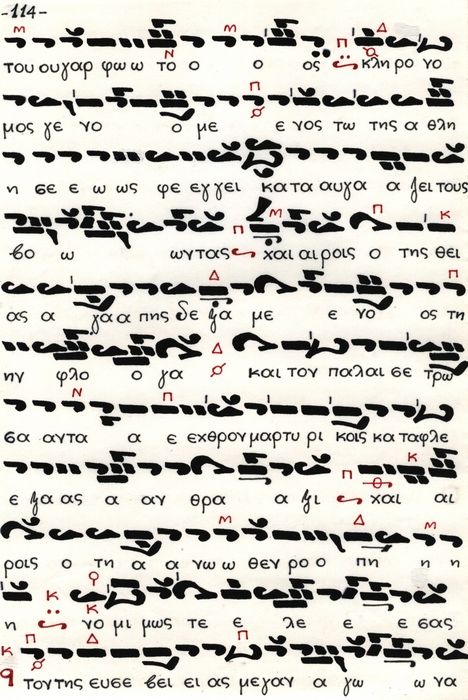 -114-
του ου γαρ φω ω το ο ο ος κλη ρο νο
μος γε νο ο με ε νος τω της α θλη
η σε ε ω ως φε εγ γει κα τα αυ γα α ζει τους
βο ω ωντας χαι αι ροις ο της θει
ας α γα α πης δε ξα με ε νο ος τη
ην φλο ο γα και τον παλαι σε τρω
σα αντα α ε εχθρον μαρτυ ρι κοις κα ταφλε
ε ξα ας α αν θρα α ξι χαι αι
ροις ο τη α α νω ω θεν ρο ο πη η η
η νο μι μως τε ε λε ε ε σας
τον της ευσε βει ει ας μεγαν α γω ω να